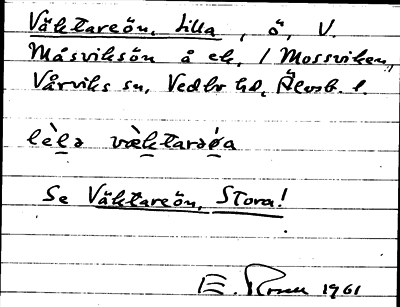 Väktareön, Lilla, ö, V.
Måsviksön å ek. / Mossviken,
Vårviks sn, Vedbo hd, Älvsb. l.
lèlə vèktarəøa
Se Väktareön, Stora!
E. Rosen 1961